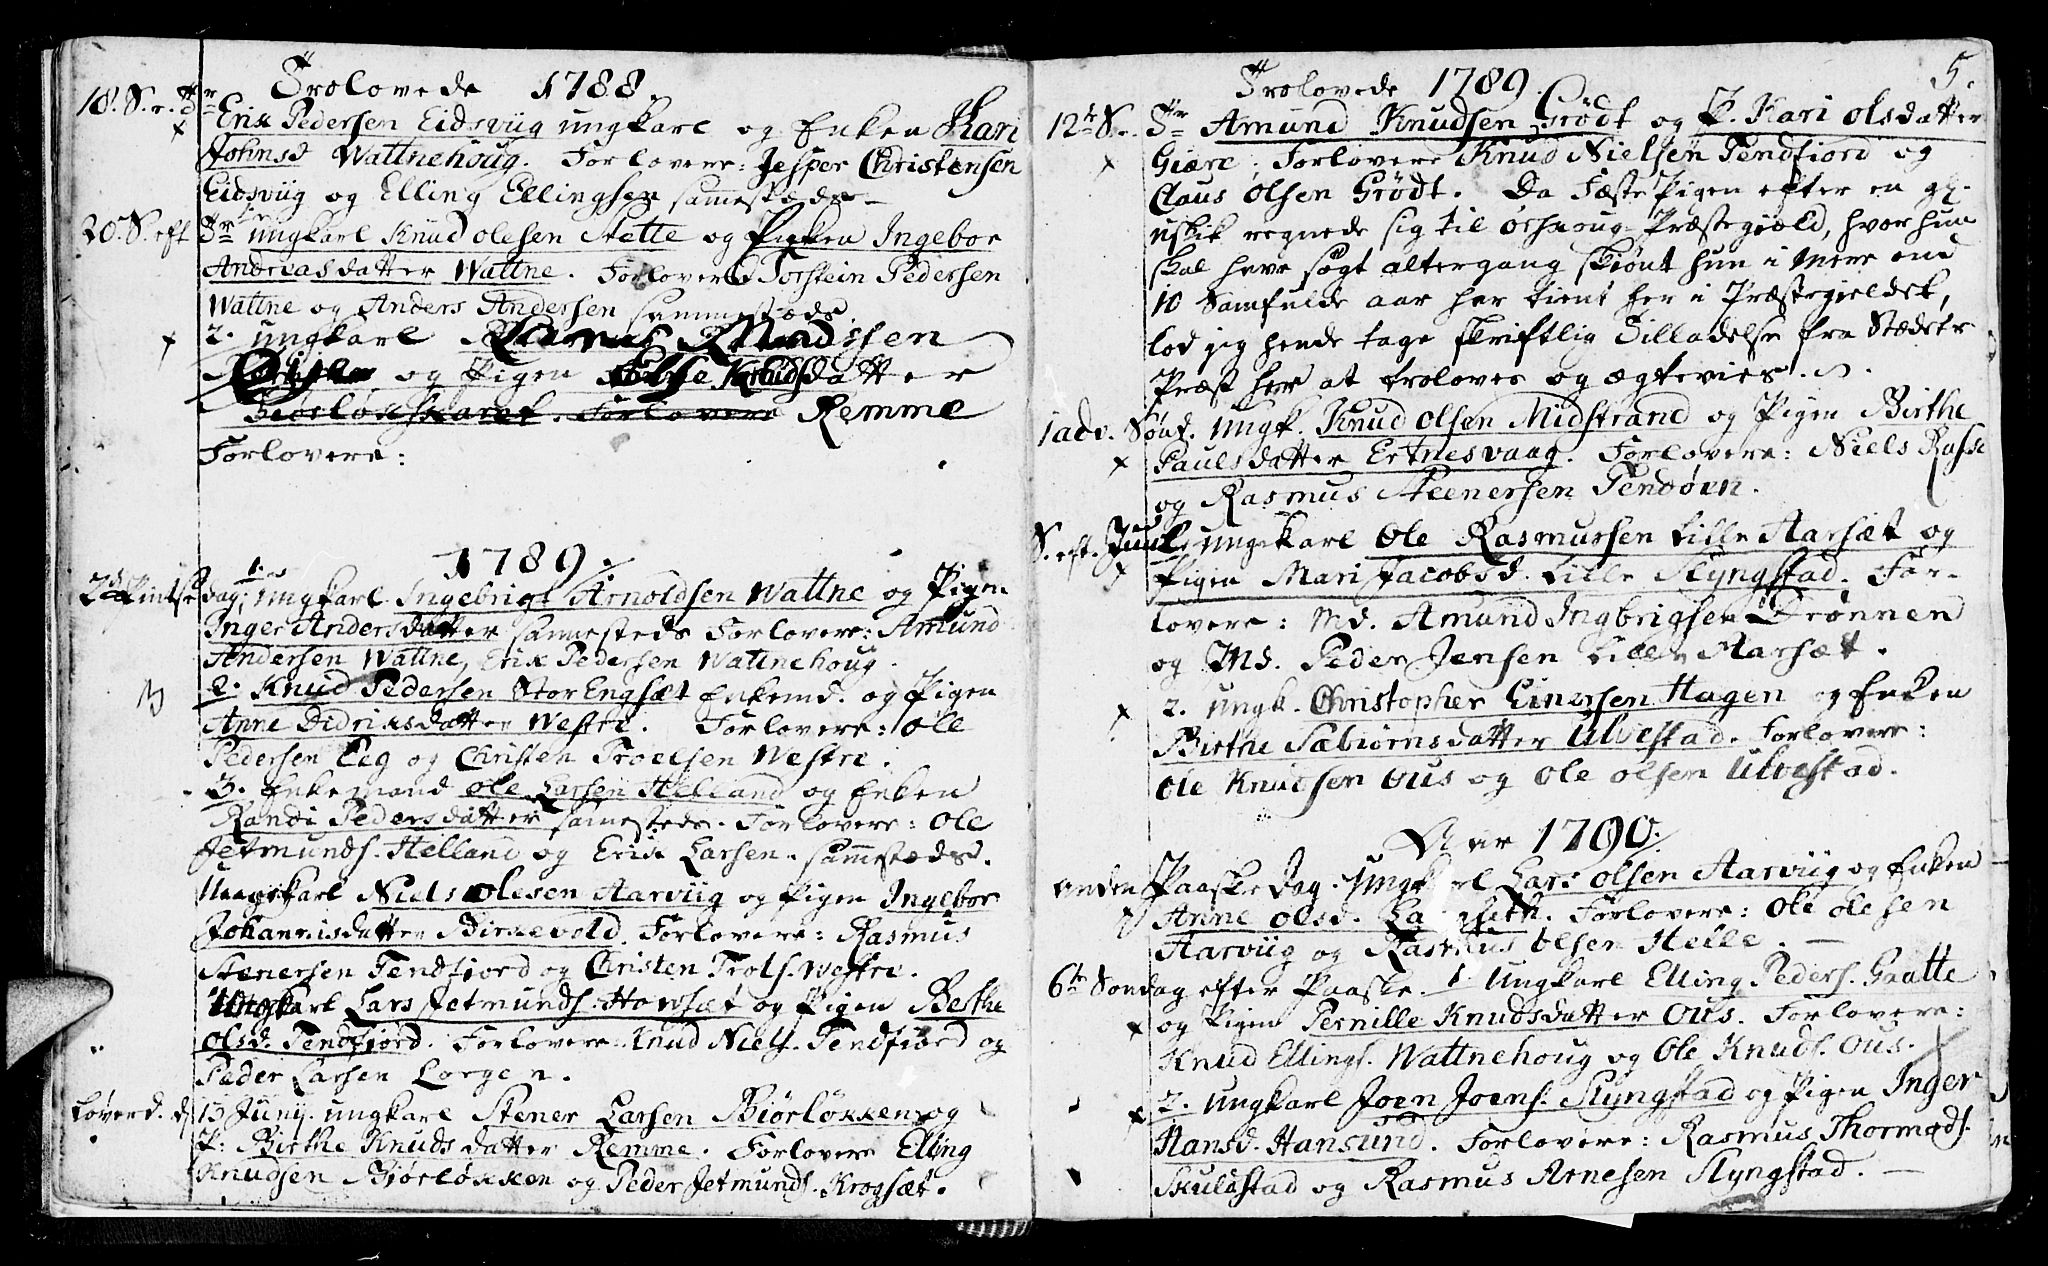 Trolovede 1788.
18. S. e. Tr Erik Pedersen Eidsviig ungkarl og Enken Kari
Johnsd Wattnehoug. Forlovere: Jesper Christensen
Eidsviig og Elling Ellingsen sammestæds
20. S. eft Tr ungkarl Knud olesen Stette og Pigen Ingebor
Andreasdatter Wattne. Forlovere Torstein Pedersen
Wattne og Anders Andersen sammestæds.
2. ungkarl Rasmus Amundssen
og Pigen Anne Knudsdatter
Biørløkskaret. Forlovere Remme
Forlovere:
1789.
2d Pintsedag; 1. ungkarl Ingebrigt Arnoldsen Wattne og Pigen
Inger Andersdatter sammesteds Forlovere: Amund
Andersen Wattne, Erik Pedersen Wattnehoug.
2. Knud Pedersen Stor Engsæt Enkemd. og Pigen
Anne Didriksdatter Westre. Forlovere: ole
Pedersen Eeg og Christen Troelsen Westre.
3. Enkemand ole Larsen Helland og Enken
Randi Pedersdatter samesteds. Forlovere: ole
Jetmunds. Helland og Erik Larsen. sammestæds.
Ungkarl Niels olesen Aarviig og Pigen Ingebor
Johannisdatter Birkevold. Forlovere: Rasmus
Stenersen Tendfjord og Christen Trols. Westre.
Ungkarl Lars Jetmunds. Howsæt og Pigen Berthe
olsd. Tendfiord. Forlovere Knud Niels. Tendfiord og
Peder Larsen Lorgen.
Løverd. d 13 Junij. ungkarl Stener Larsen Biørløkken og
P: Birthe Knudsdatter Remme. Forlovere Elling
Knudsen Biørløkken og Peder Jetmunds. Krogsæt.
Trolovede 1789. 5.
12te S. Tr Amund Knudsen Grödt og P. Kari olsdatter
Giære; Forlovere Knud Nielsen Tendfiord og
Claus olsen Grödt. Da Fæste Pigen efter en gl.
uskik regnede sig tilØrschoug Præstegiæld, hvor hun
skal have søgt altergang skiønt hun i mere end
10 samfulde aar har tient her i Præstegieldet,
lod jeg hende tage skriftlig Tilladelse fra Stedets
Præst her at troloves og ægtevies.
1 adv. Sønt. ungk. Knud olsen Midstrand og Pigen Birthe
Paulsdatter Ertnesvaag. Forlovere: Niels
og Rasmus Steenersen Tendøen.
S. eft. Juul. ungkarl Ole Rasmussen Lille Aarsæt og
Pigen Mari Jacobsd. Lille Slyngstad. For-
lovere: Md. Amund Ingbrigsen Drønnen
og Md. Peder Jensen Lille Aarsæt.
2. ungk. Christopher Einersen Hagen og Enken
Birthe Sæbiørnsdatter Ulvestad. Forlovere:
Ole Knudsen Ous og Ole olsen Ulvestad.
Aar 1790.
anden Paaske Dag. Ungkarl Lars olsen Aarviig og Enken
Anne olsd. Forlovere: Ole olesen
Aarviig og Rasmus olsen Helle.
6te Søndag efter Paaske. 1 Ungkarl Elling Peders. Gaatte
og Pigen Pernille Knudsdatter Ous. Forlovere:
Knud Ellings. Wattnehoug og Ole Knuds. Ous.
2. Ungkarl Joen Joens. Slyngstad og Pigen Inger
Hansd. Hansund. Forlovere: Rasmus Thormods.
Skulestad og Rasmus Arnesen Slyngstad.